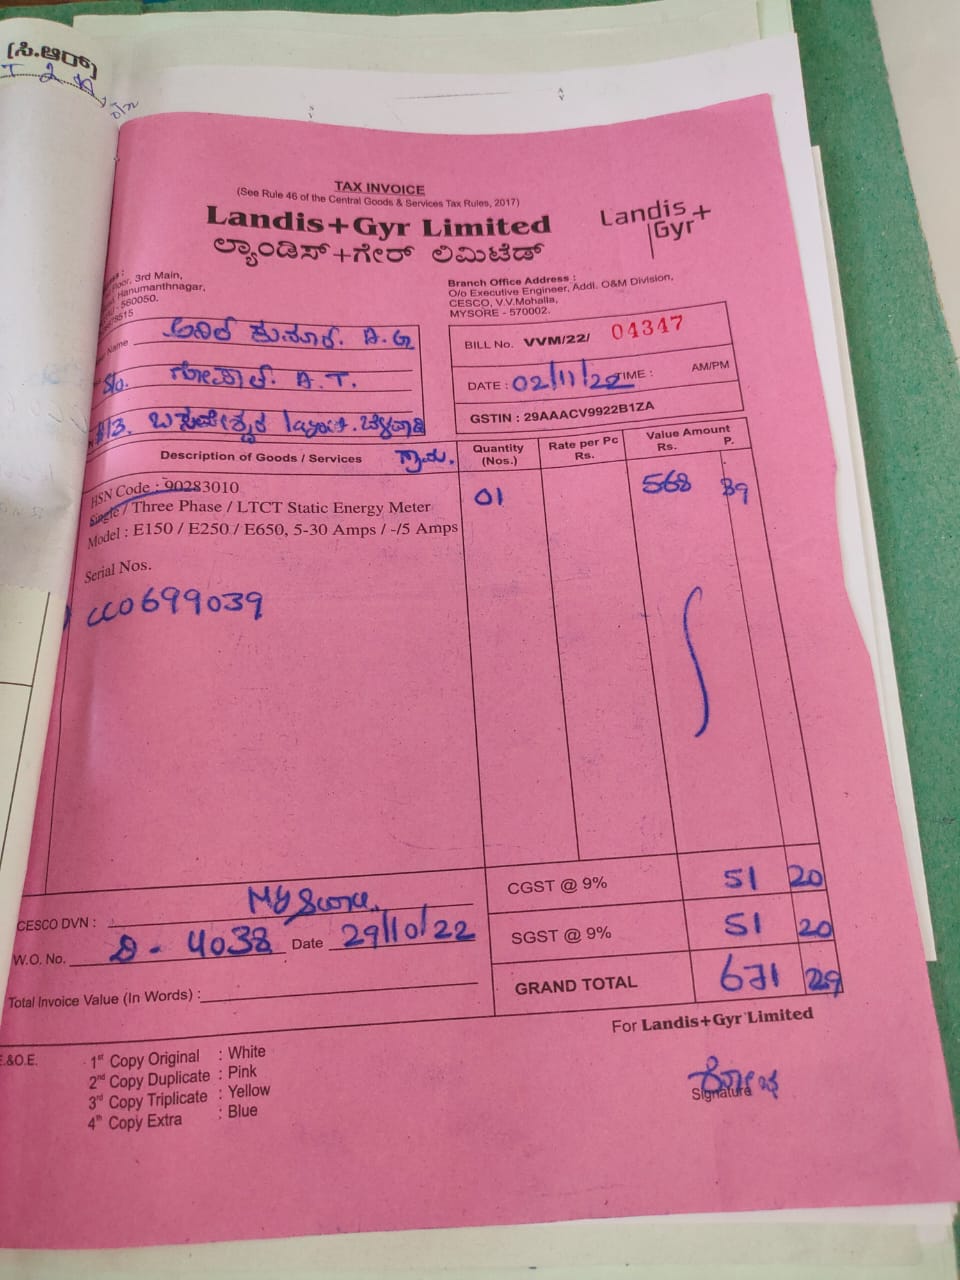 (ಸಿ.ಆರ್)
TAX INVOICE
(See Rule 46 of the Central Goods & Services Tax Rules, 2017)
Landis+Gyr Limited
ಲ್ಯಾಂಡಿಸ್+ಗೇರ್ ಲಿಮಿಟೆಡ್
Landis+
Gyr
3rd Main,
Hanumanthnagar,
560050.
Branch Office Address :
O/o Executive Engineer, Addl. O&M Division,
CESCO, V.V.Mohalla,
MYSORE - 570002.
Name ಅನಿಲ್ ಕುಮಾರ್. A.G
S/o. ಗೋಪಾಲ್. A.T.
#13. ಬಸವೇಶ್ವರ layout.
ಗ್ರಾಮ.
BILL No. VVM/22/ 04347
DATE : 02/11/22 TIME : AM/PM
GSTIN : 29AAACV9922B1ZA
Description of Goods / Services Quantity (Nos.) Rate per Pc Rs. Value Amount Rs. P.
HSN Code : 90283010 01 568 89
Single / Three Phase / LTCT Static Energy Meter
Model : E150 / E250 / E650, 5-30 Amps / -/5 Amps
Serial Nos.
CC0699039
CGST @ 9% 51 20
SGST @ 9% 51 20
GRAND TOTAL 671 29
CESCO DVN : Mysore.
W.O. No. D - 4038 Date 29/10/22
Total Invoice Value (In Words) :
For Landis+Gyr Limited
Signature
E.&O.E.
1st Copy Original : White
2nd Copy Duplicate : Pink
3rd Copy Triplicate : Yellow
4th Copy Extra : Blue